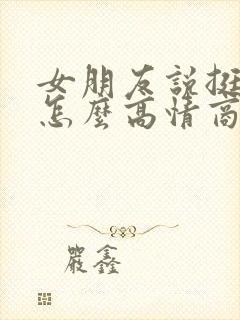 女朋友說挺
怎麼高情商
嚴鑫